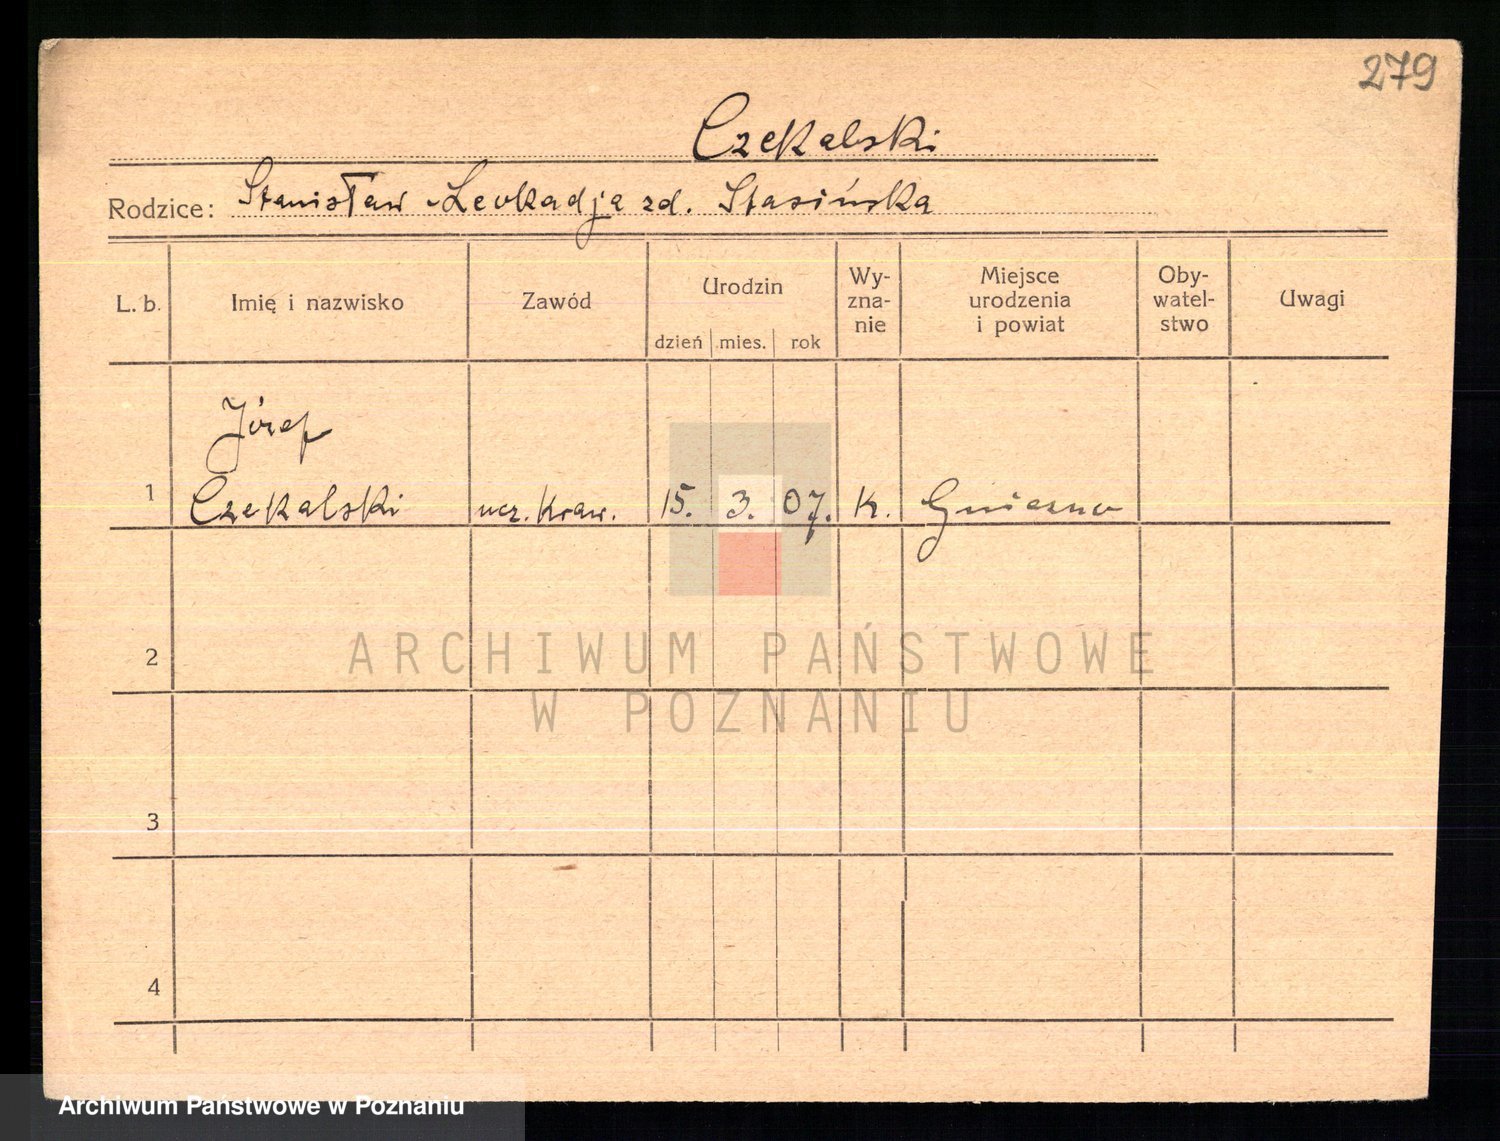 279
Czekalski
Rodzice: Stanisław - Leokadja zd. Stasińska
L. b. Imię i nazwisko Zawód Urodzin dzień mies. rok Wy-zna-nie Miejsce urodzenia i powiat Oby-watel-stwo Uwagi
Józef
1 Czekalski ucz. kraw. 15. 3. 07. k. Gniezno
2
ARCHIWUM PAŃSTWOWE
W POZNANIU
3
4
Archiwum Państwowe w Poznaniu